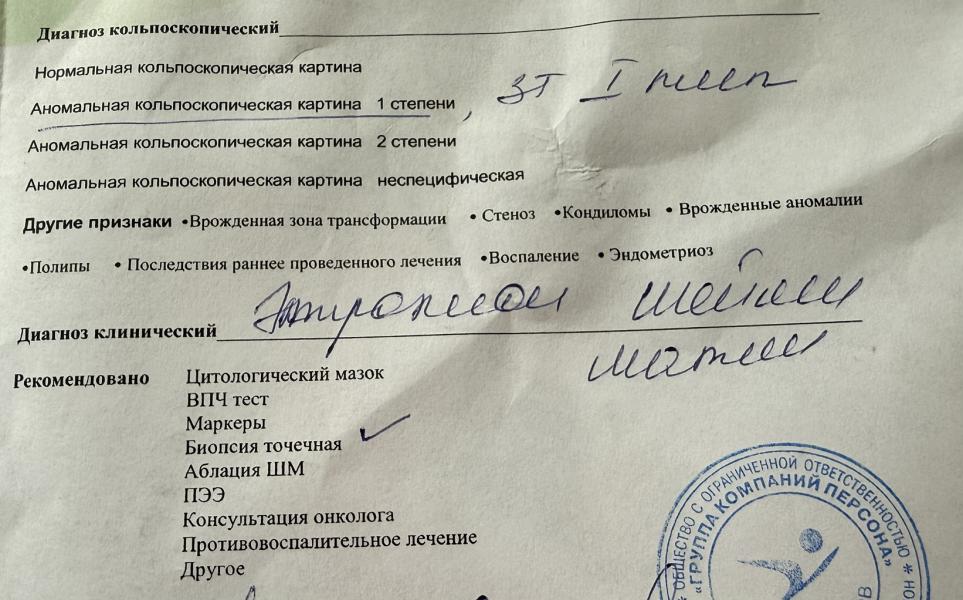 Диагноз кольпоскопический
Нормальная кольпоскопическая картина
Аномальная кольпоскопическая картина 1 степени, ЗТ I тип
Аномальная кольпоскопическая картина 2 степени
Аномальная кольпоскопическая картина неспецифическая
Другие признаки •Врожденная зона трансформации • Стеноз •Кондиломы • Врожденные аномалии
•Полипы • Последствия раннее проведенного лечения •Воспаление • Эндометриоз
Диагноз клинический Эктропион шейки
матки
Рекомендовано Цитологический мазок
ВПЧ тест
Маркеры
Биопсия точечная ✓
Аблация ШМ
ПЭЭ
Консультация онколога
Противовоспалительное лечение
Другое
ОБЩЕСТВО С ОГРАНИЧЕННОЙ ОТВЕТСТВЕННОСТЬЮ * НО
"ГРУППА КОМПАНИЙ ПЕРСОНА"